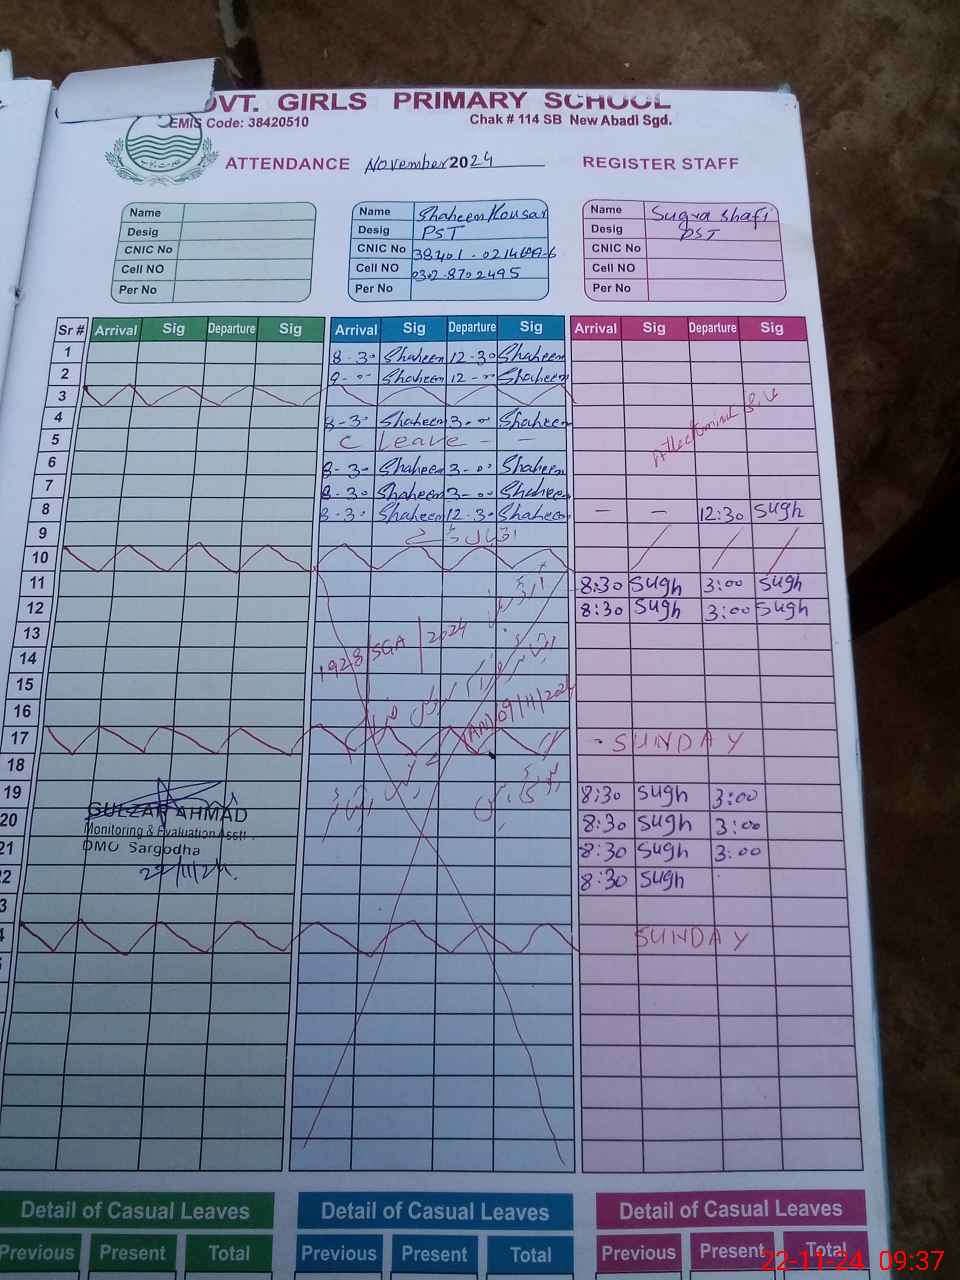 OVT. GIRLS PRIMARY SCHOOL
EMIS Code: 38420510
Chak # 114 SB New Abadi Sgd.
ATTENDANCE November 2024 REGISTER STAFF
Name
Desig
CNIC No
Cell NO
Per No
Name Shaheen Kousar
Desig PST
CNIC No
Cell NO 0302-8702495
Per No
Name Sugra Shafi
Desig PST
CNIC No
Cell NO
Per No
Sr # Arrival Sig Departure Sig Arrival Sig Departure Sig Arrival Sig Departure Sig
1 8-30 Shaheen 12-30 Shaheen
2 9-00 Shaheen 12-00 Shaheen
3
4 8-30 Shaheen 3-00 Shaheen
5 C Leave - -
6 8-30 Shaheen 3-00 Shaheen
7 8-30 Shaheen 3-00 Shaheen
8 8-30 Shaheen 12-30 Shaheen - - 12:30 Sugh
9
10
11 8:30 Sugh 3:00 Sugh
12 8:30 Sugh 3:00 Sugh
13
1928/SGA/2024
14
15
16
09/11/202
17 SUNDAY
18
19 8:30 Sugh 3:00
20 8:30 Sugh 3:00
21 8:30 Sugh 3:00
2 8:30 Sugh
3
4 SUNDAY
GULZAR AHMAD
Monitoring & Evaluation Asstt.
DMO Sargodha
22/11/24
Detail of Casual Leaves Detail of Casual Leaves Detail of Casual Leaves
Previous Present Total Previous Present Total Previous Present Total
22-11-24 09:37